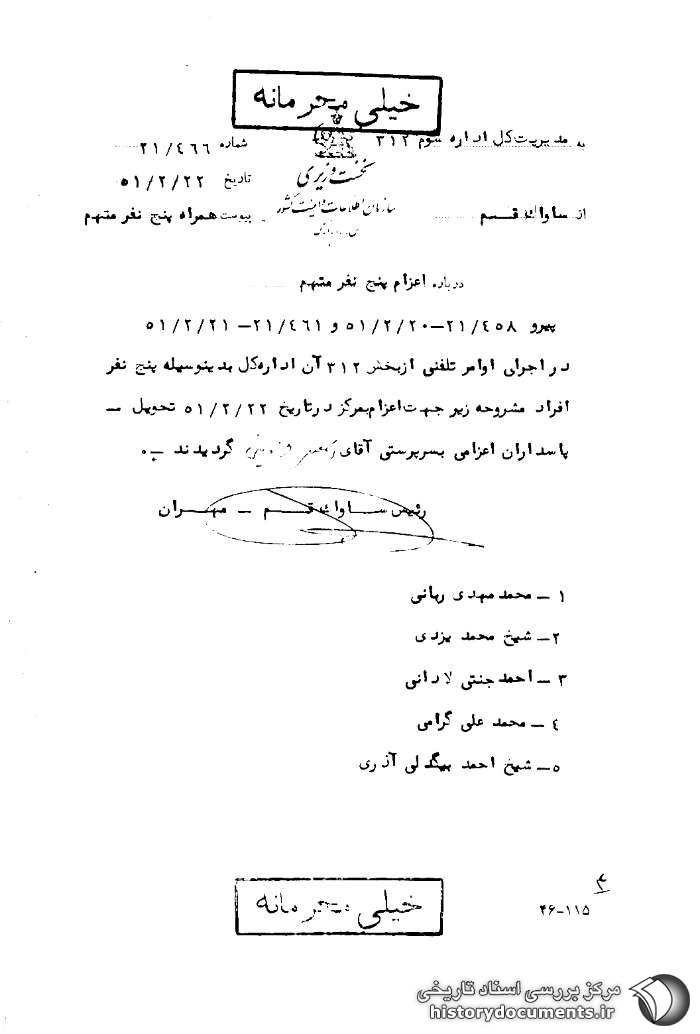 خیلی محرمانه
به مدیریت کل اداره سوم ۳۱۲
شماره ۲۱/٤٦٦
نخست وزیری
تاریخ ۵۱/۲/۲۲
سازمان اطلاعات و امنیت کشور
از ساواک قم
پیوست همراه پنج نفر متهم
درباره اعزام پنج نفر متهم
پیرو ۲۱/٤۵۸–۵۱/۲/۲۰ و ۲۱/٤٦۱–۵۱/۲/۲۱
در اجرای اوامر تلفنی از بخش ۳۱۲ آن اداره کل بدینوسیله پنج نفر
افراد مشروحه زیر جهت اعزام بمرکز در تاریخ ۵۱/۲/۲۲ تحویل –
پاسداران اعزامی بسرپرستی آقای گردیدند –.
رئیس ساواک قم – مهران
۱ – محمد مهدی ربانی
۲ – شیخ محمد یزدی
۳ – احمد جنتی لادانی
٤ – محمد علی گرامی
۵ – شیخ احمد بیگدلی آذری
خیلی محرمانه
۴۶–۱۱۵
مرکز بررسی اسناد تاریخی
historydocuments.ir